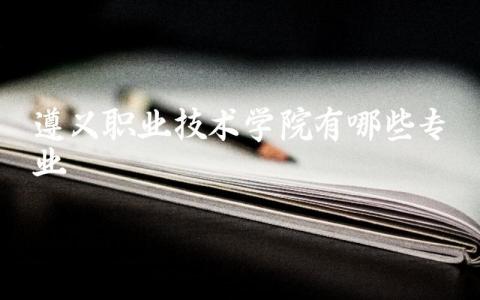 遵义职业技术学院有哪些专
业